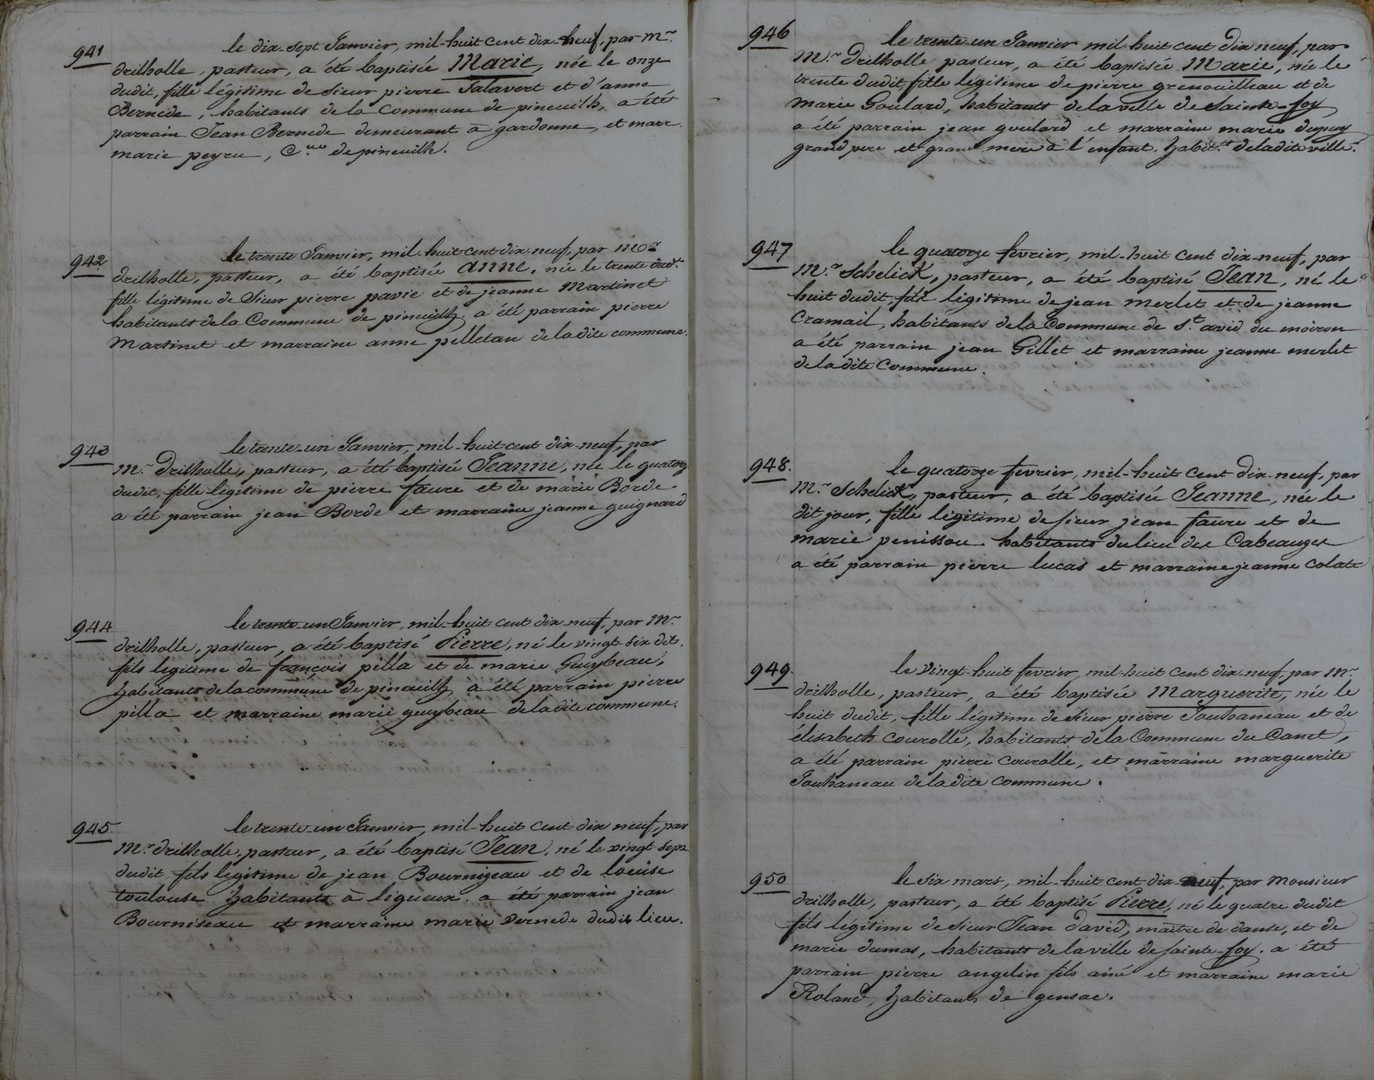 941
le dix-sept Janvier, mil-huit cent dix-neuf, par Mr
drilholle, pasteur, a été baptisée Marie, née le onze
dudit, fille légitime de Sieur pierre Talavert et d'anne
Bernede, habitants de la Commune de pineuilh, a été
parrain Jean Bernede demeurant à gardonne, et marr.
marie peyru, Cne de pineuilh.
942
le trente Janvier, mil-huit cent dix-neuf, par mor
drilholle, pasteur, a été baptisée anne, née le trente dudt
fille légitime de Sieur pierre pavie et de jeanne Martinet
habitants de la Commune de pineuilh, a été parrain pierre
Martinet et marraine anne pelletan de la dite commune.
943
le trente-un Janvier, mil-huit cent dix-neuf, par
Mr drilholle, pasteur, a été baptisée Jeanne, née le quatorz
dudit, fille légitime de pierre faure et de marie Borde
a été parrain jean Borde et marraine jeanne guignard
944
le trente-un Janvier, mil-huit cent dix neuf, par Mr
drilholle, pasteur, a été baptisé Pierre, né le vingt-six dit.
fils legitime de françois pilla et de marie Guiybeau,
habitants de la commune de pineuilh, a été parrain pierre
pilla et marraine marie guiybeau de la dite commune.
945
le trente un Janvier, mil-huit cent dix neuf, par
Mr drilholle, pasteur, a été baptisé Jean, né le vingt sept
dudit fils légitime de jean Bournizeau et de louise
toulouse habitants à ligueux. a été parrain jean
Bourniseau et marraine marie Vernede dudit lieu.
946
le trente-un Janvier mil huit cent Dix neuf, par
Mr Drilholle pasteur, a été baptisée Marie, née le
trente dudit fille légitime de pierre grenouilleau et de
Marie Goulard, habitants de la ville de Sainte-foy
a été parrain jean goulard et marraine marie dupuy
grand pere et grand mere à l'enfant. habit.ts de la dite ville.
947
le quatorze fevrier, mil-huit cent dix-neuf, par
Mr Schelick, pasteur, a été baptisé Jean, né le
huit dudit, fils légitime de jean merlet et de jeanne
Cramail, habitants de la Commune de St avid du moiron
a été parrain jean Gillet et marraine jeanne merlet
de la dite Commune.
948.
le quatorze fevrier, mil-huit Cent dix-neuf, par
Mr Schelick, pasteur, a été baptisée Jeanne, née le
dit jour, fille légitime de sieur jean faure et de
marie penissou habitants du lieu des Cabeauzes
a été parrain pierre lucas et marraine jeanne Colate
949
le Vingt-huit fevrier, mil huit cent dix neuf, par Mr
drilholle, pasteur, a été baptisée Marguerite, née le
huit dudit, fille légitime de Sieur pierre Jouhaneau et de
élisabeth Courolle, habitants de la Commune du Canet,
a été parrain pierre Courolle, et marraine marguerite
Jouhaneau de la dite commune.
950
le six mars, mil-huit cent dix neuf, par Monsieur
drilholle, pasteur, a été baptisé Pierre, né le quatre dudit
fils légitime de Sieur Jean david, maitre de danse, et de
marie dumas, habitants de la ville de Sainte-foy. a été
parrain pierre angelin fils ainé et marraine marie
Roland, habitants de gensac.